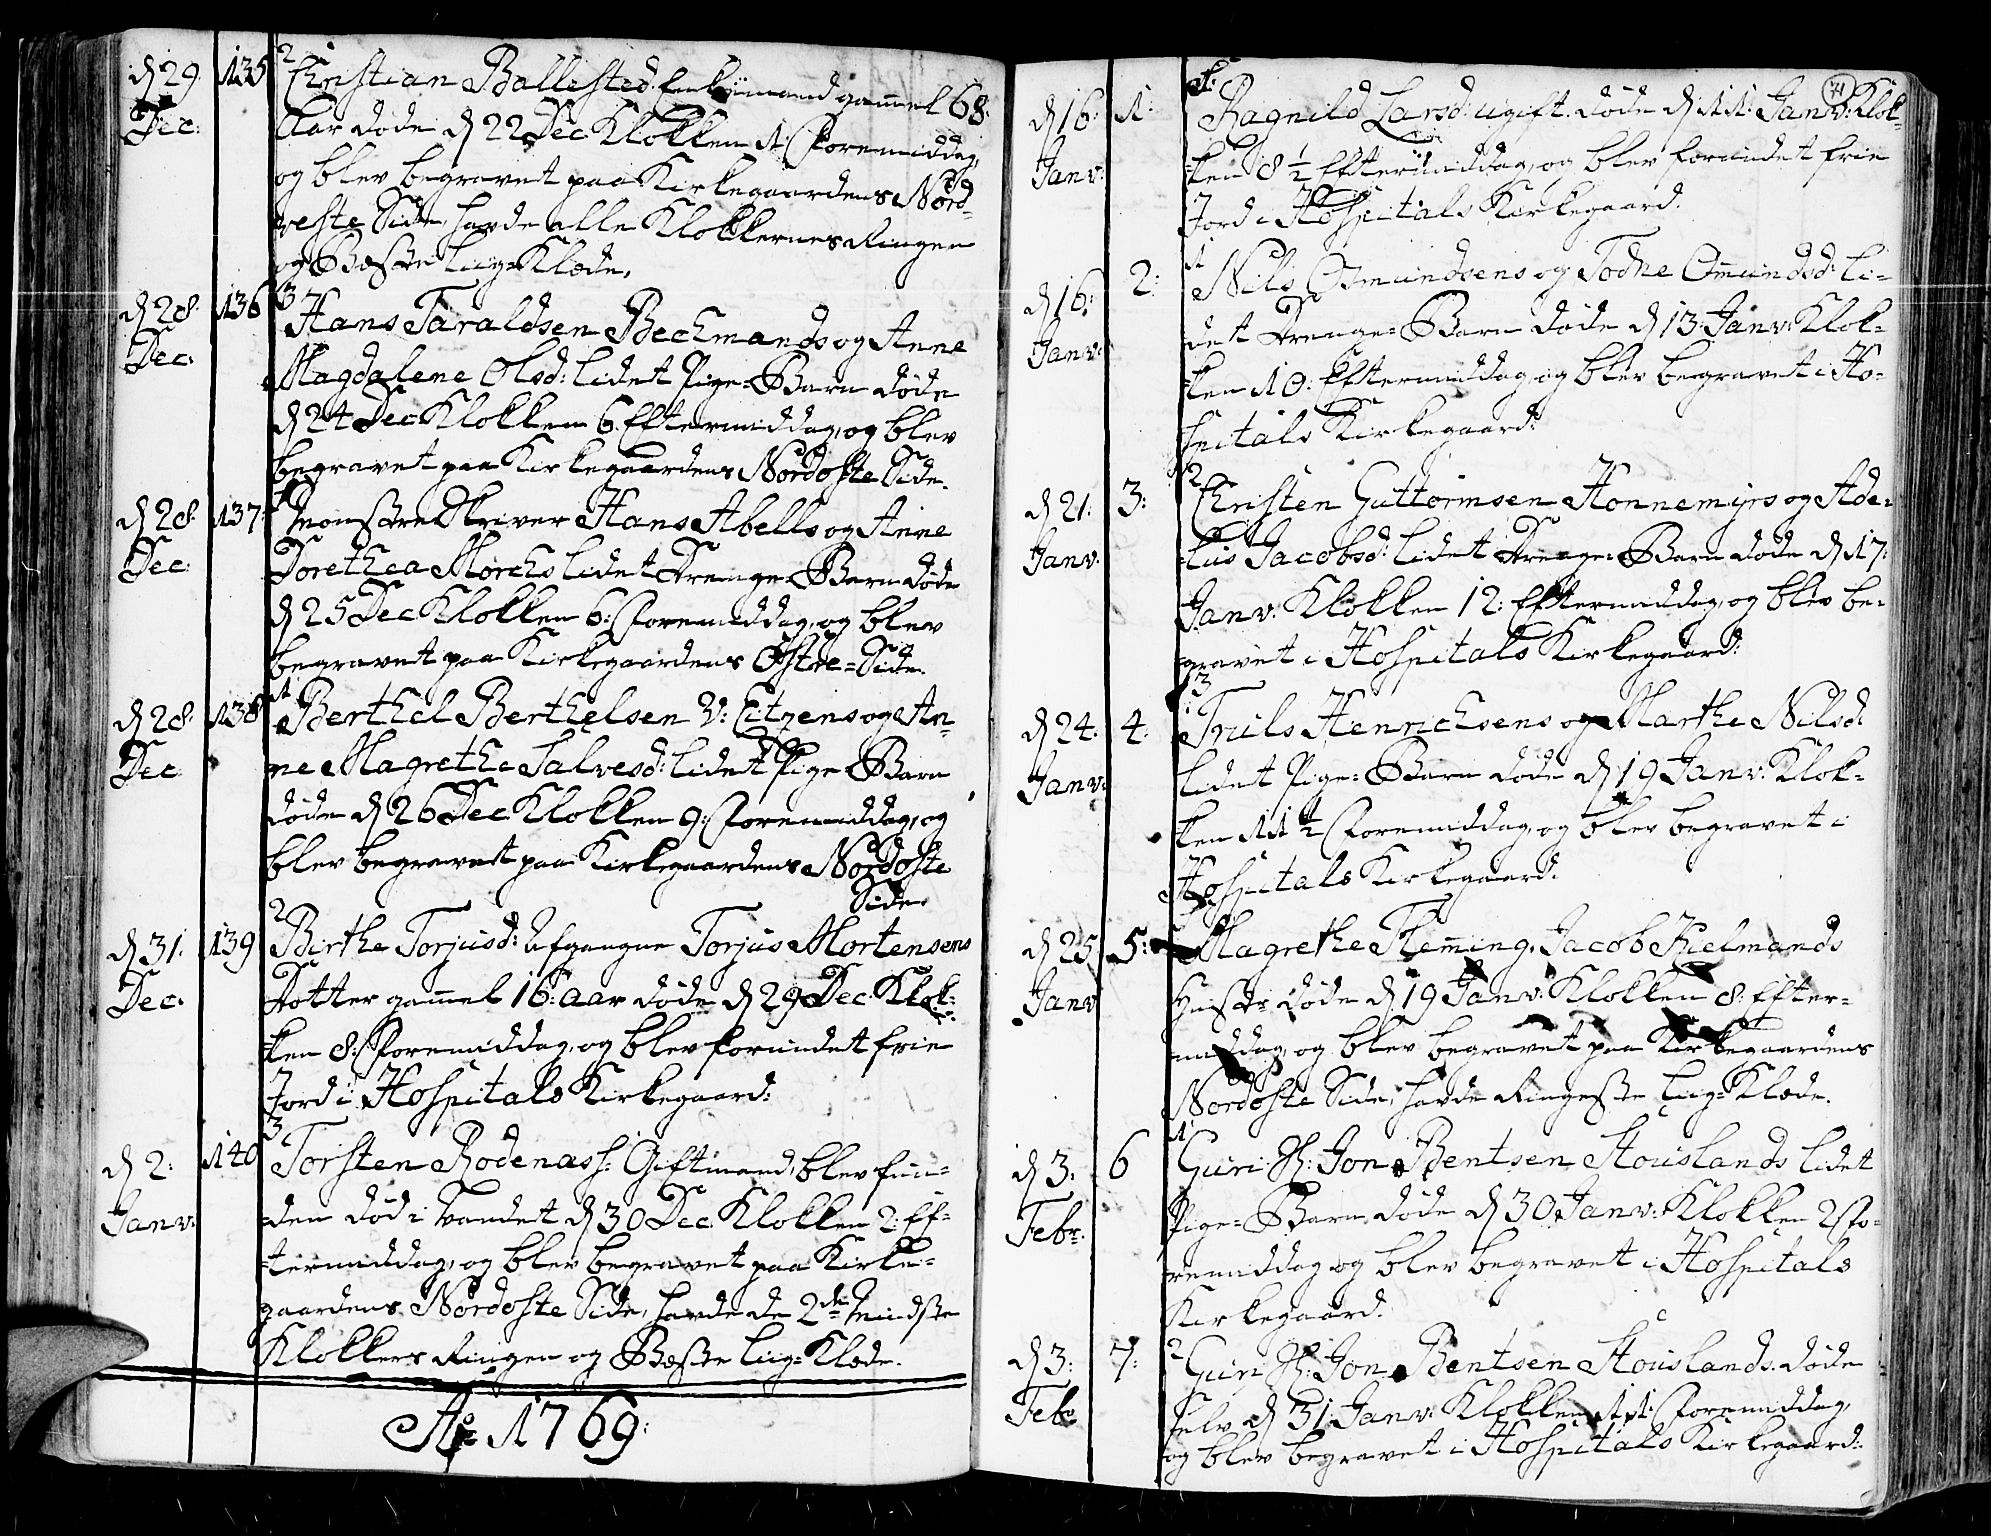 d 29. Dec: 135 2 Christian Ballested Enkemand gammel 68:
Aar døde d 22 Dec Klokken 1: Foremiddag,
og blev begravet paa Kirkegaardens Nord-
veste Side, havde alle Klokkernes Ringen
og Beste Liig-Klæde.
d 28. Dec: 136 3 Hans Taraldsen Bechmands og Anne
Magdalene Olsd: Lidet Pige-Barn døde
d 24 Dec Klokken 6. Eftermiddag, og blev
begravet paa Kirkegaardens Nordoste Side.
d 28. Dec: 137: Mønstre Skriver Hans Abells og Anne
Dorethea Mørchs Lidet Drenge-Barn døde
d 25 Dec Klokken 6: Foremiddag, og blev
begravet paa Kirkegaardens Østre-Side.
d 28. Dec: 138 1 Berthel Berthelsen V: Citzens og An-
ne Magrethe Salvesd: Lidet Pige Barn
døde d 26 Dec Klokken 9: Foremiddag, og
blev begravet paa Kirkegaardens Nordoste
Side.
d 31. Dec. 139 2 Birthe Torjusd: Afgangne Torjus Mortensens
Dotter gammel 16: aar døde d 29 Dec. Klok-
ken 8: Foremiddag, og blev forundet frie
Jord i Hospitals Kirkegaard:
d 2: Janv: 140 3 Torsten Rodenæss: Giftmand, blev fun-
den død i Vandet d 30 Dec. Klokken 2: Ef-
termiddag, og blev begravet paa Kirke-
gaardens Nordoste Side, havde de 2de Mindste
Klokkers Ringen og Beste Liig-Klæde.
Ao 1769:
71
d 16: Janv: 1: Ragnild Larsd: ugift. døde d 11: Janv: Klok-
ken 8 1/2 Eftermiddag, og blev forundet frie
Jord i Hospitals Kirkegaard.
d 16: Janv: 2: 1 Nils Osmundsens og Todne Omundsd: Li-
det Drenge-Barn døde d 13 Janv: Klok-
ken 10: Eftermiddag, og blev begravet i Ho-
spitals Kirkegaard:
d 21: Janv: 3: 2 Christen Guttormsen Honnemyrs og Ade-
lus Jacobsd: Lidet Drenge-Barn døde d 17:
Janv: Klokken 12: Eftermiddag, og blev be-
gravet i Hospitals Kirkegaard:
d 24. Janv: 4: 3 Truls Henrichsens og Marthe Nilsd:
Lidet Pige-Barn døde d 19 Janv: Klok-
ken 11 1/2 Foremiddag, og blev begravet i
Hospitals Kirkegaard.
d 25 Janv 5: Magrethe Fleming, Jacob Kielmands
Hustr: døde d 19 Janv: Klokken 8: Efter-
middag, og blev begravet paa Kirkegaardens
Nordoste Side, havde Ringeste Liig-Klæde.
d 3: Febr. 6 1 Guri Sl: Jon Bentsen Houslands Lidet
Pige-Barn, døde d 30 Janv: Klokken 2 Fo-
remiddag og blev begravet i Hospitals
Kirkegaard.
d 3: Feb: 7: 2 Guri Sl: Jon Bentsen Houslands. døde
selv d 31 Janv: Klokken 11: Foremiddag,
og blev begravet i Hospitals Kirkegaard: